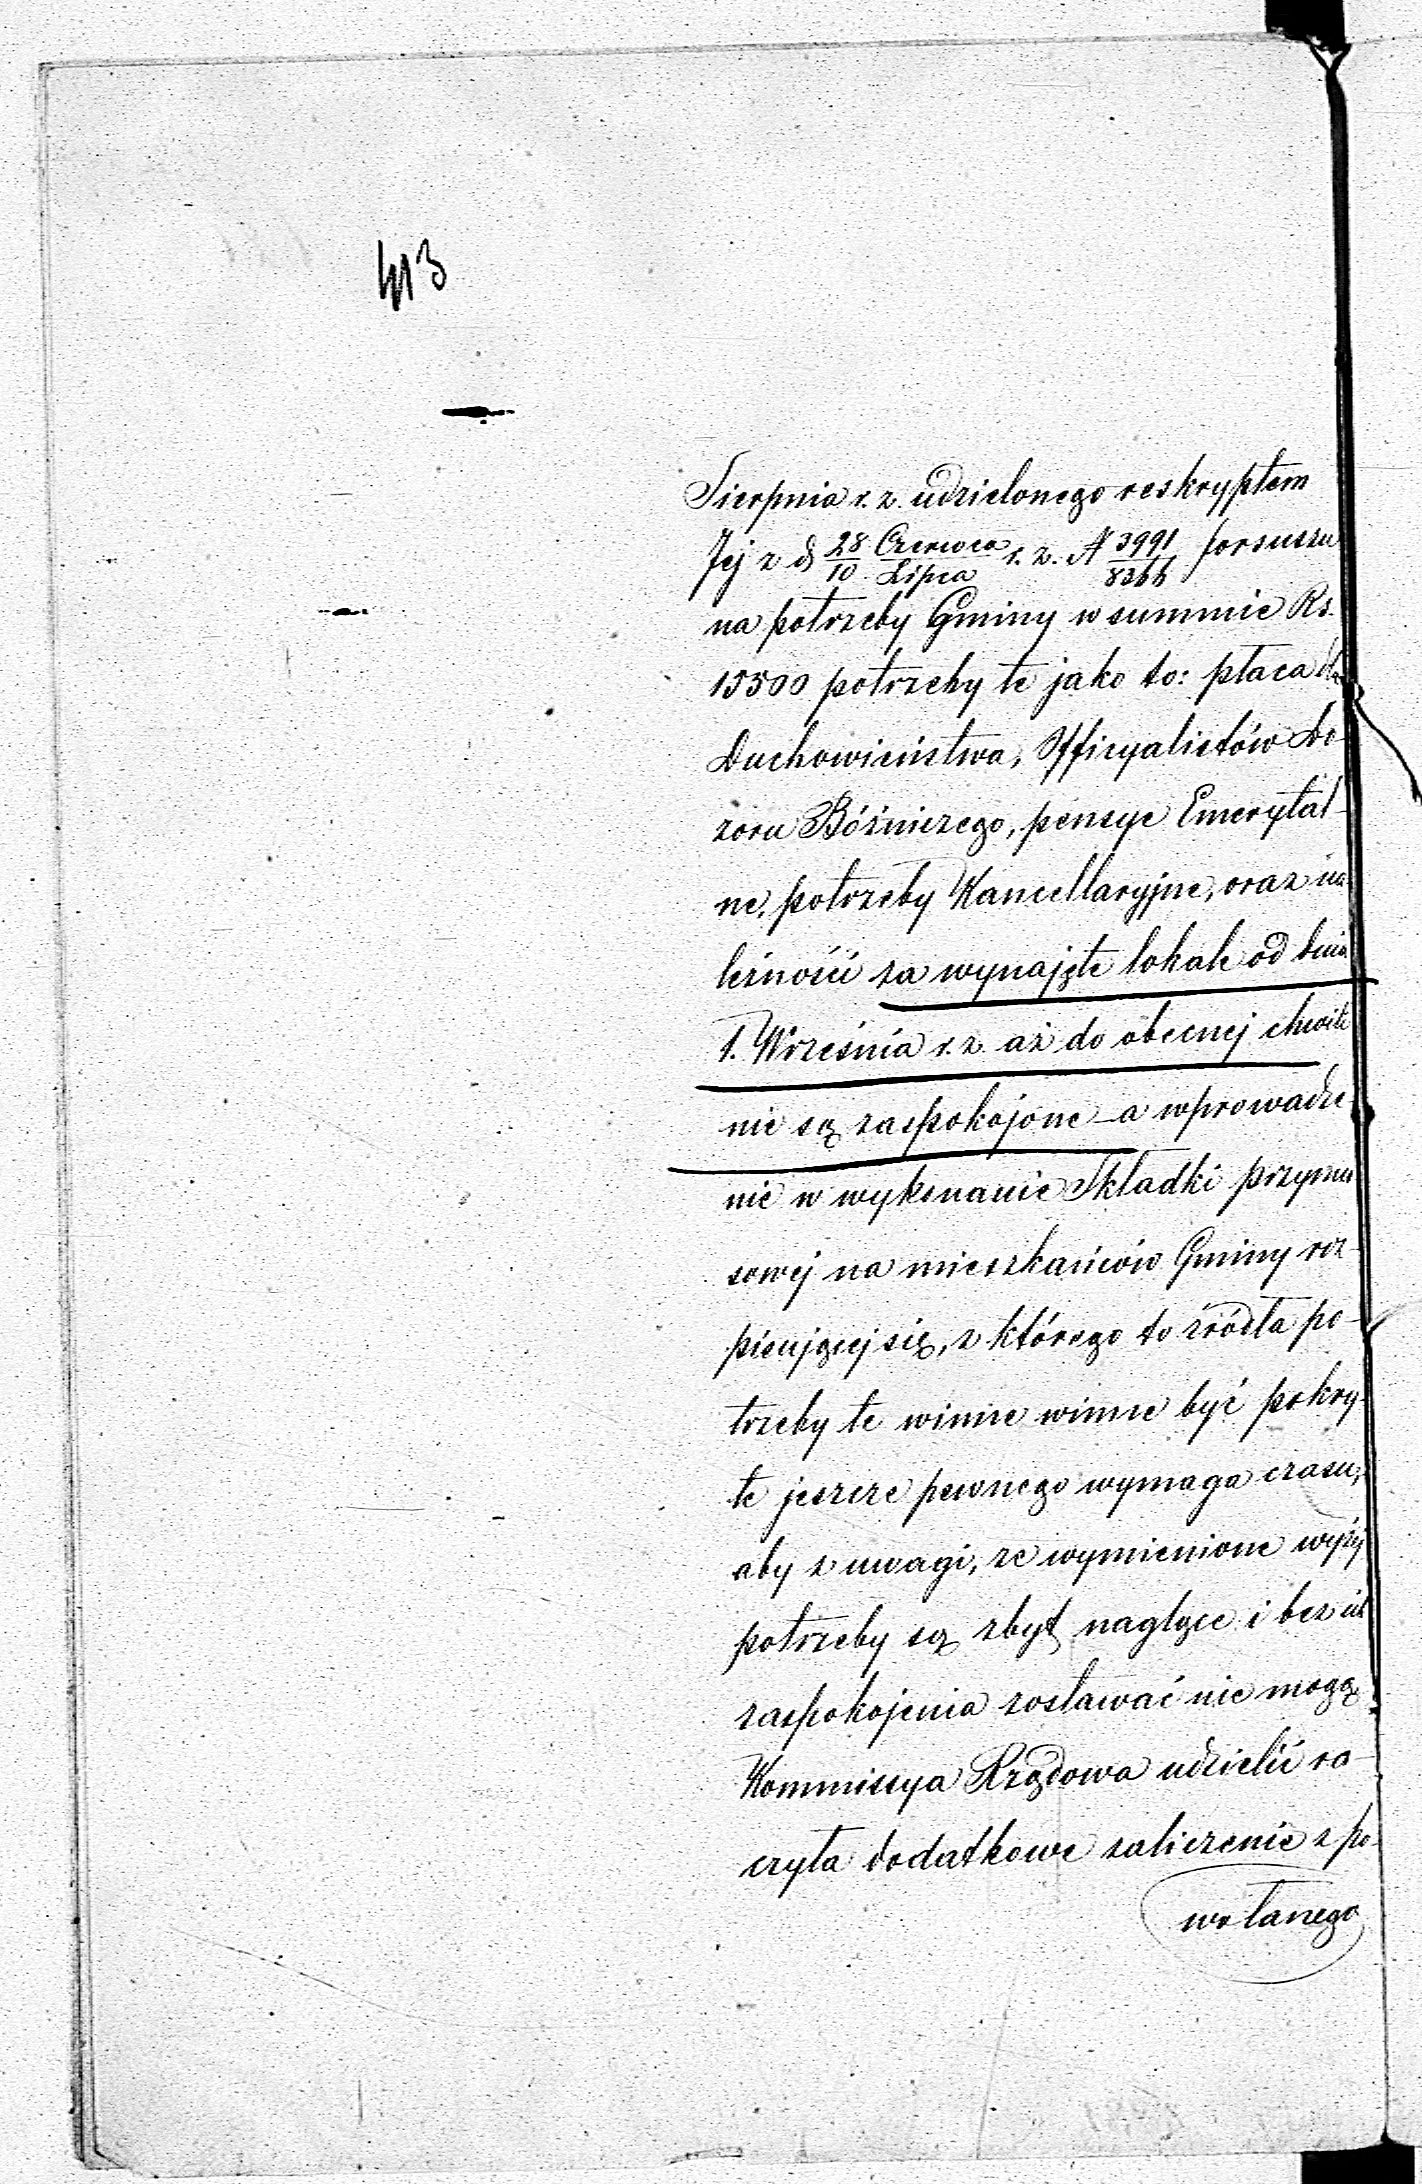 413
Sierpnia r.z. udzielonego reskryptem
Jej z d 28/10 Czerwca/Lipca r.z. N 3991/8366 forsuszu
na potrzeby Gminy w summie Rs.
15500 potrzeby te jako to: płaca dla
Duchowieństwa, Officyalistów Do-
zoru Bóżniczego, pensye Emerytal-
ne, potrzeby Kancellaryjne, oraz na
leżności za wynajęte lokale od dnia
1. Września r.z. aż do obecnej chwili
nie są zaspokojone – a wprowadze-
nie w wykonanie Składki przymu
sowej na mieszkańców Gminy roz-
pisującej się, z którego to źródła po-
trzeby te winne winne być pokry-
te jeszcze pewnego wymaga czasu,
aby z uwagi, że wymienione wyżej
potrzeby są zbyt naglące i bez
zaspokojenia zostawać nie mogą
Kommissya Rządowa udzielić ra-
czyła dodatkowe zaliczenie z po-
wołanego